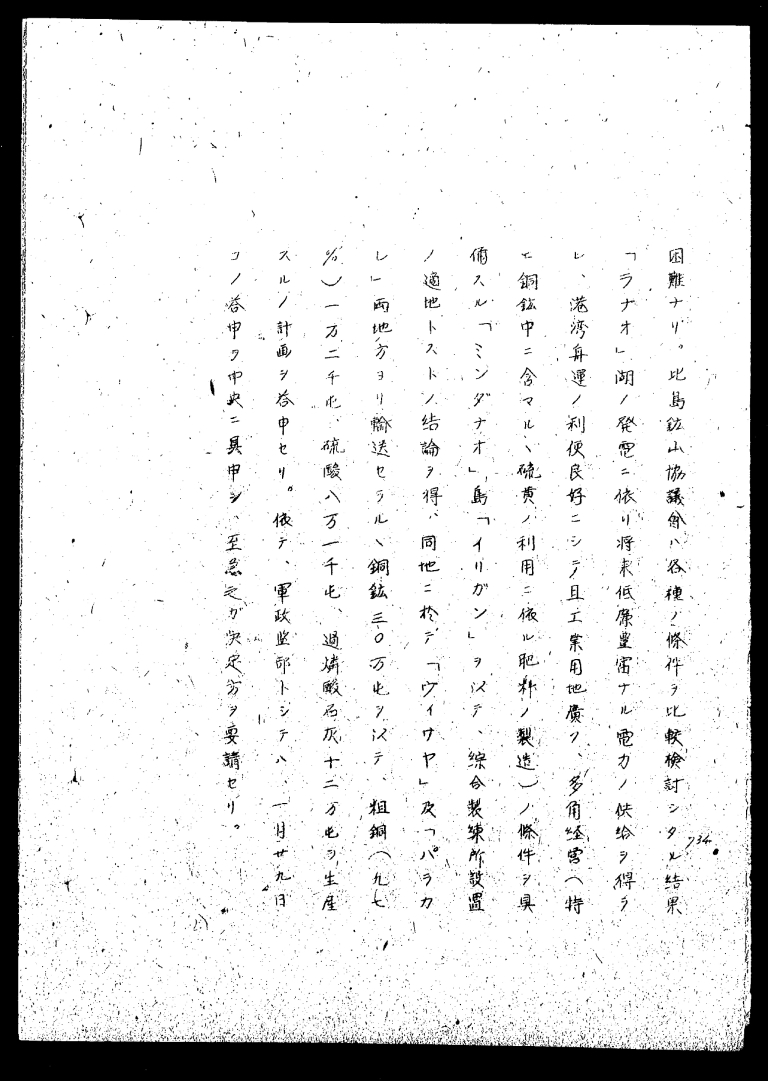 困難ナリ。比島鉱山協議會ハ各種ノ條件ヲ比較検討シタル結果
「ラナオ」湖ノ発電ニ依リ将来低廉豊富ナル電力ノ供給ヲ得ラ
レ、港湾舟運ノ利便良好ニシテ且工業用地廣ク、多角経営(特
ニ銅鉱中ニ含マルヽ硫黄ノ利用ニ依ル肥料ノ製造)ノ條件ヲ具
備スル「ミンダナオ」島「イリガン」ヲ以テ、綜合製煉所設置
ノ適地トストノ結論ヲ得、同地ニ於テ「ヴイサヤ」及「パラカ
レ」両地方ヨリ輸送セラルヽ銅鉱三〇万屯ヲ以テ、粗銅(九七
%)一万二千屯、硫酸八万一千屯、過燐酸石灰十二万屯ヲ生産
スルノ計画ヲ答申セリ。依テ、軍政監部トシテハ、一月廿九日
コノ答申ヲ中央ニ具申シ、至急之ガ決定方ヲ要請セリ。
734